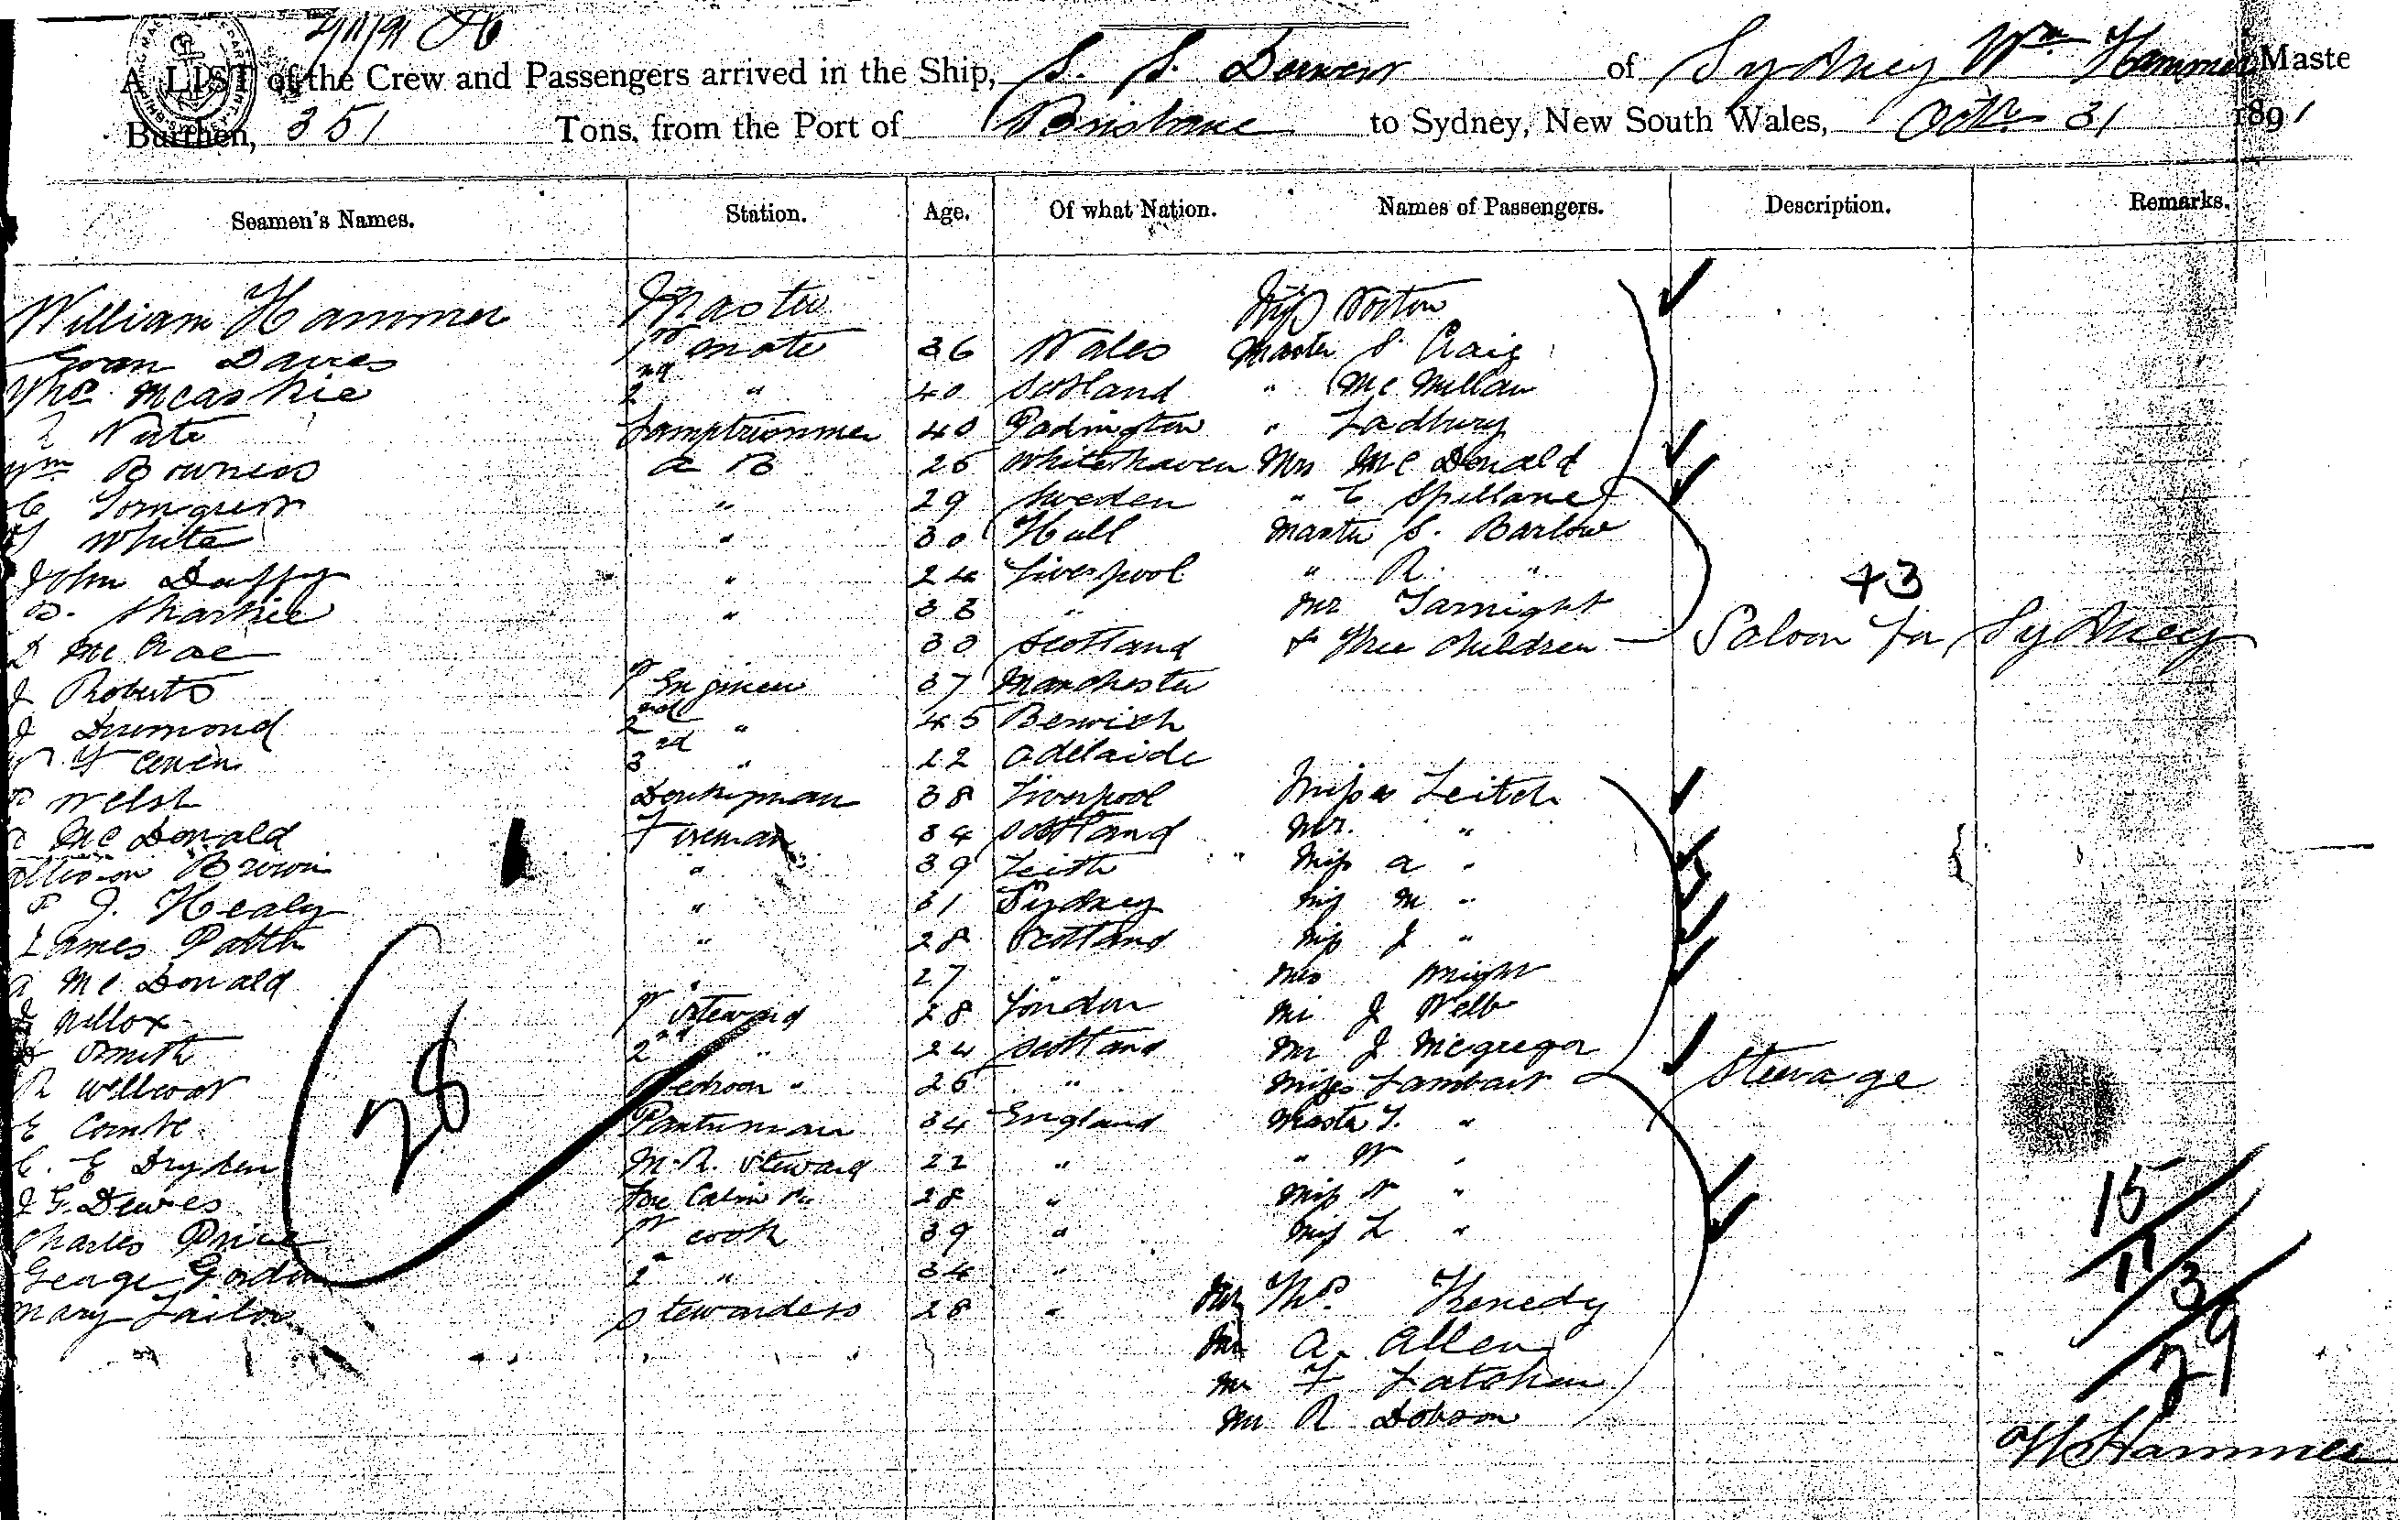 2/11/91
A LIST of the Crew and Passengers arrived in the Ship, S. S. of Sydney Wm Hammer Maste
Burthen, 351 Tons, from the Port of Brisbane to Sydney, New South Wales, Octr 31 1891
Seamen's Names. Station. Age. Of what Nation. Names of Passengers. Description. Remarks.
William Hammer Master Miss Norton
Evan Davies 1st mate 36 Wales Master S. Craig
Thos McAskie 2nd " 40 Scotland " McMillan
Nute Lamptrimmer 40 Padington " Ladbury
Wm Bowness A B 25 Whitehaven Mrs McDonald
C " 29 Sweden " E Spillane
White " 30 Hull Master S. Barlow
John Duffy " 24 Liverpool " R. "
Sharkie " 33 " Mr Tarnight
D McCrae 30 Scotland & three children Saloon for Sydney
43
J Roberts 1st Engineer 37 Manchester
J Drumond 2nd " 45 Berwick
Ewen 3rd " 22 Adelaide
Welsh Donkeyman 38 Liverpool Miss Leitch
McDonald Fireman 34 Scotland Mr. "
Brown " 39 Leith Miss A "
J. Healy " 31 Sydney Miss M "
James " 28 Scotland Miss J "
A McDonald " 27 " Mrs Wright
1st Steward 28 London Mr J Webb
Smith 2nd " 24 Scotland Mr J McGregor
R Willcox Bedroom " 26 " Misses Lambart Steerage
E Combe Pantryman 34 England Master T. "
C. E Dryden M. R. Steward 22 " " W "
J G. Dewes Fore Cabin 28 " Miss N "
Charles Price 1st Cook 39 " Miss L "
George Gordon 2 " 34 "
Mary Tailor Stewardess 28 " Mr Thos. Kenedy
Mr A. Allen
Mr F
Mr R Dobson
28
15
11
3
29
W Hammer